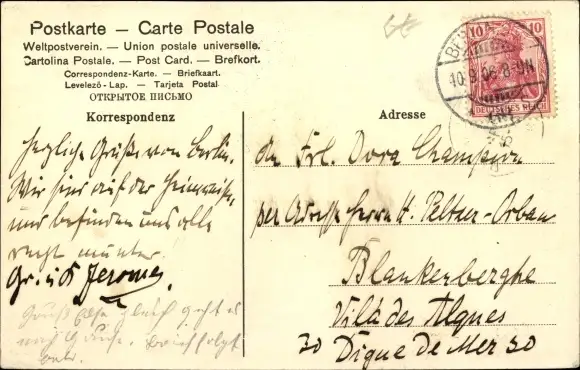 Postkarte — Carte Postale
Weltpostverein. — Union postale universelle.
Cartolina Postale. — Post Card. — Brefkort.
Correspondenz-Karte. — Briefkaart.
Levelező-Lap. — Tarjeta Postal
ОТКРЫТОЕ ПИСЬМО
Korrespondenz
Herzliche Grüße von Berlin.
Wir sind auf der Heimreise,
und befinden uns alle
recht munter.
Gr. u. K Jerome
Gruß Else gleich geht es
nach Hause. Brief folgt
Adresse
An Frl. Dora Champion
per Adresse Herrn H. Peltzer-Orban
Blankenberghe
Villa des Algues
30 Digue de Mer 30
10 10
DEUTSCHES REICH
BE
10.9.06. 8-9N